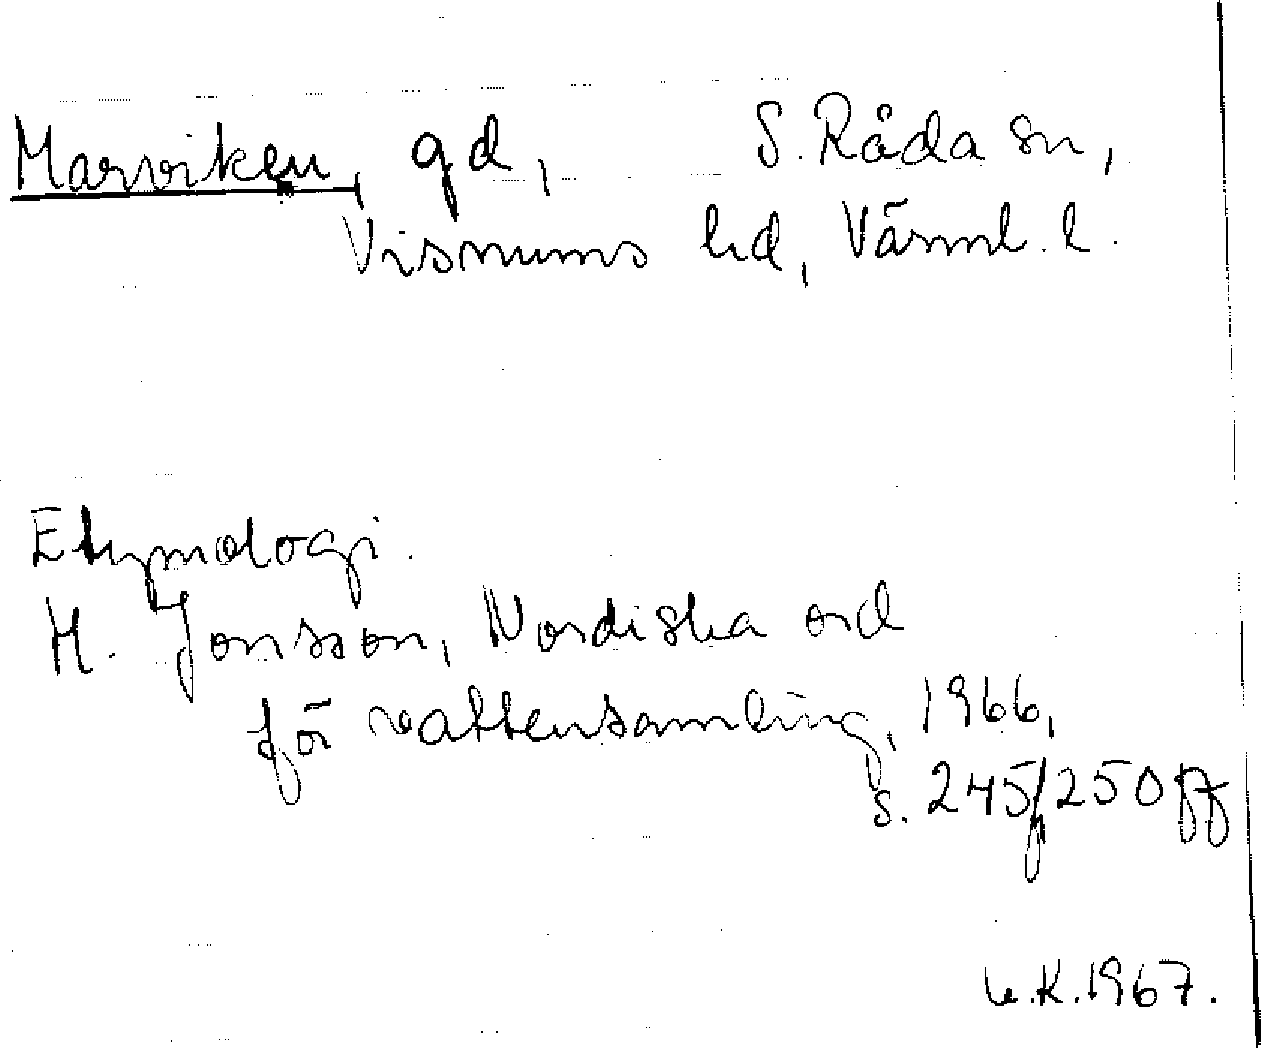 Marviken, gd, S. Råda sn,
Visnums hd, Värml. l.
Etymologi.
H. Jonsson, Nordiska ord
för vattensamling, 1966,
s. 245f, 250 ff
K. 1967.